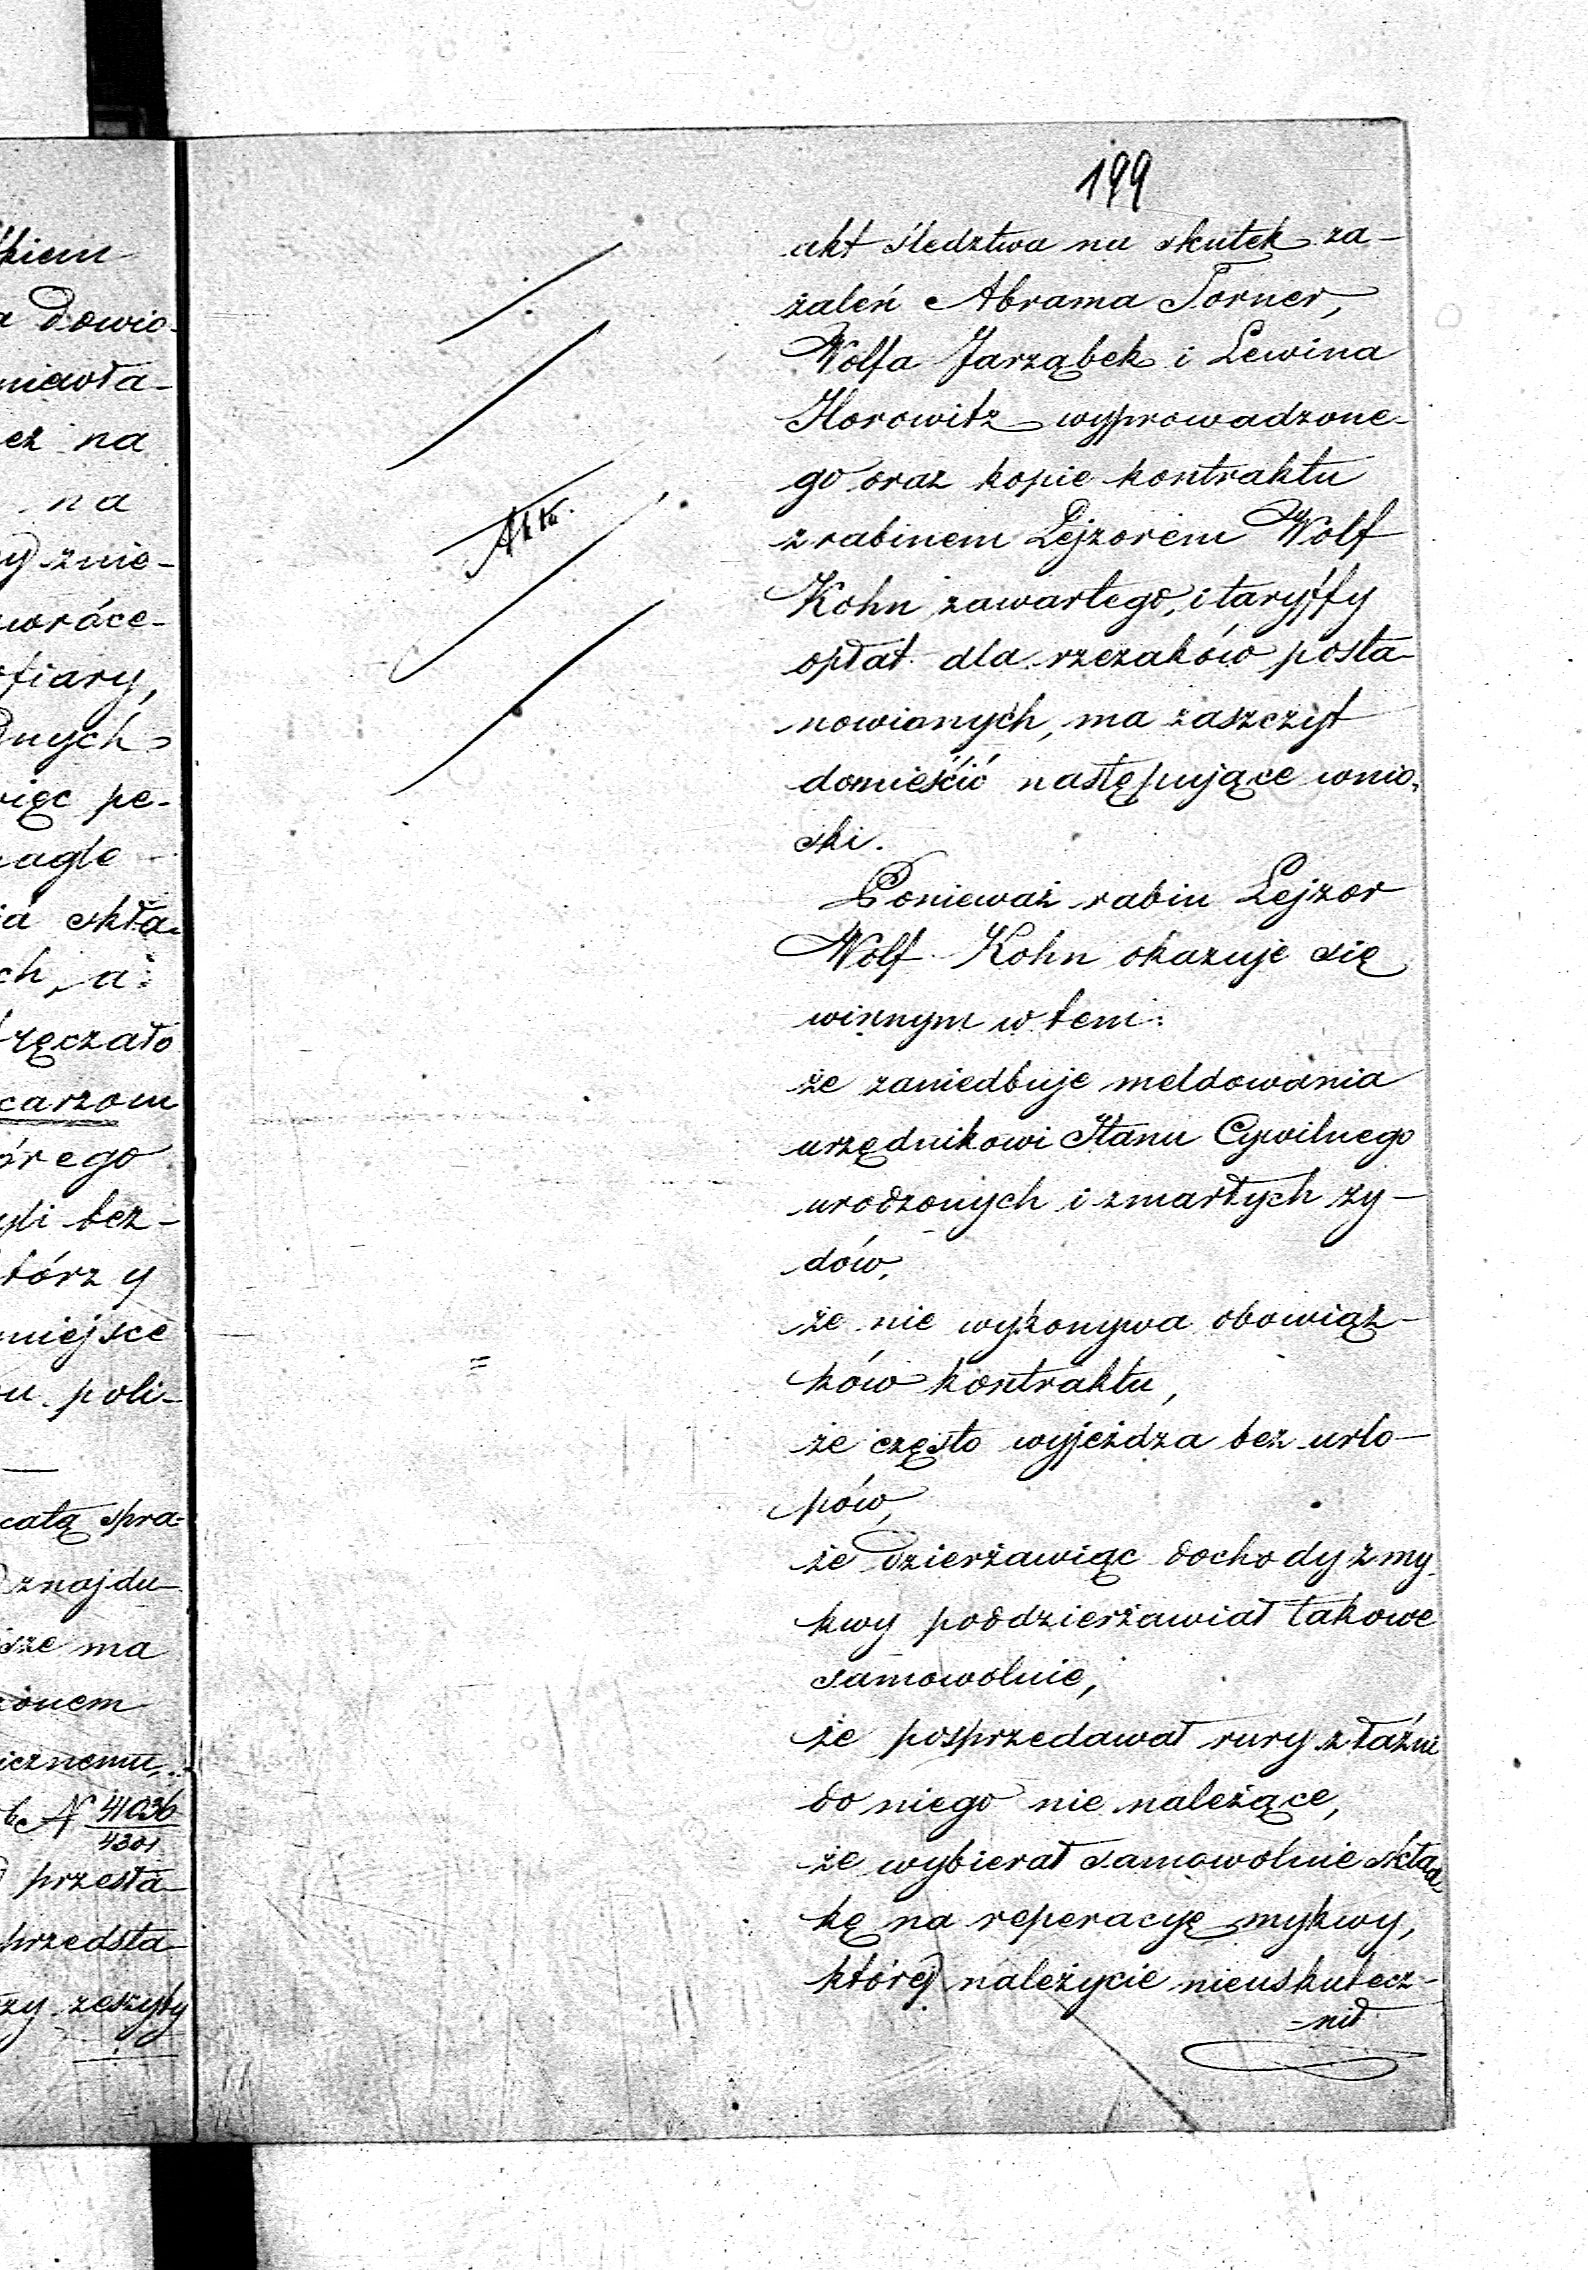 kiem
Dowio-
niawła-
eż na
na
y znie-
wróce-
ofiary,
dnych
więc pe-
nagle
ia skła-
ch, a
ręczało
carzom
órego
yli bez-
tórzy
miejsce
u poli-
całą spra-
znajdu-
sze ma
onem
icznemu,
N 41036
4301
przesta-
przedsta-
zy zeszyty
199
akt śledztwa na skutek za-
żaleń Abrama Torner,
Wolfa Jarząbek i Lewina
Horowitz wyprowadzone-
go oraz kopie kontraktu
z rabinem Lejzorem Wolf
Kohn zawartego, i taryffy
opłat dla rzezaków posta-
nowionych, ma zaszczyt
domieścić następujące wnio-
ski.
Ponieważ rabin Lejzor
Wolf Kohn okazuje się
winnym w tem:
że zaniedbuje meldowania
urzędnikowi Stanu Cywilnego
urodzonych i zmarłych ży-
dów,
że nie wykonywa obowiąz-
ków kontraktu,
że często wyjeżdza bez urlo-
pów,
że dzierżawiąc dochody z my-
kwy poddzierżawiał takowe
samowolnie,
że posprzedawał rury z łaźni
do niego nie należące,
że wybierał samowolnie skład-
kę na reperacyę mykwy,
której należycie nieuskutecz-
-nił